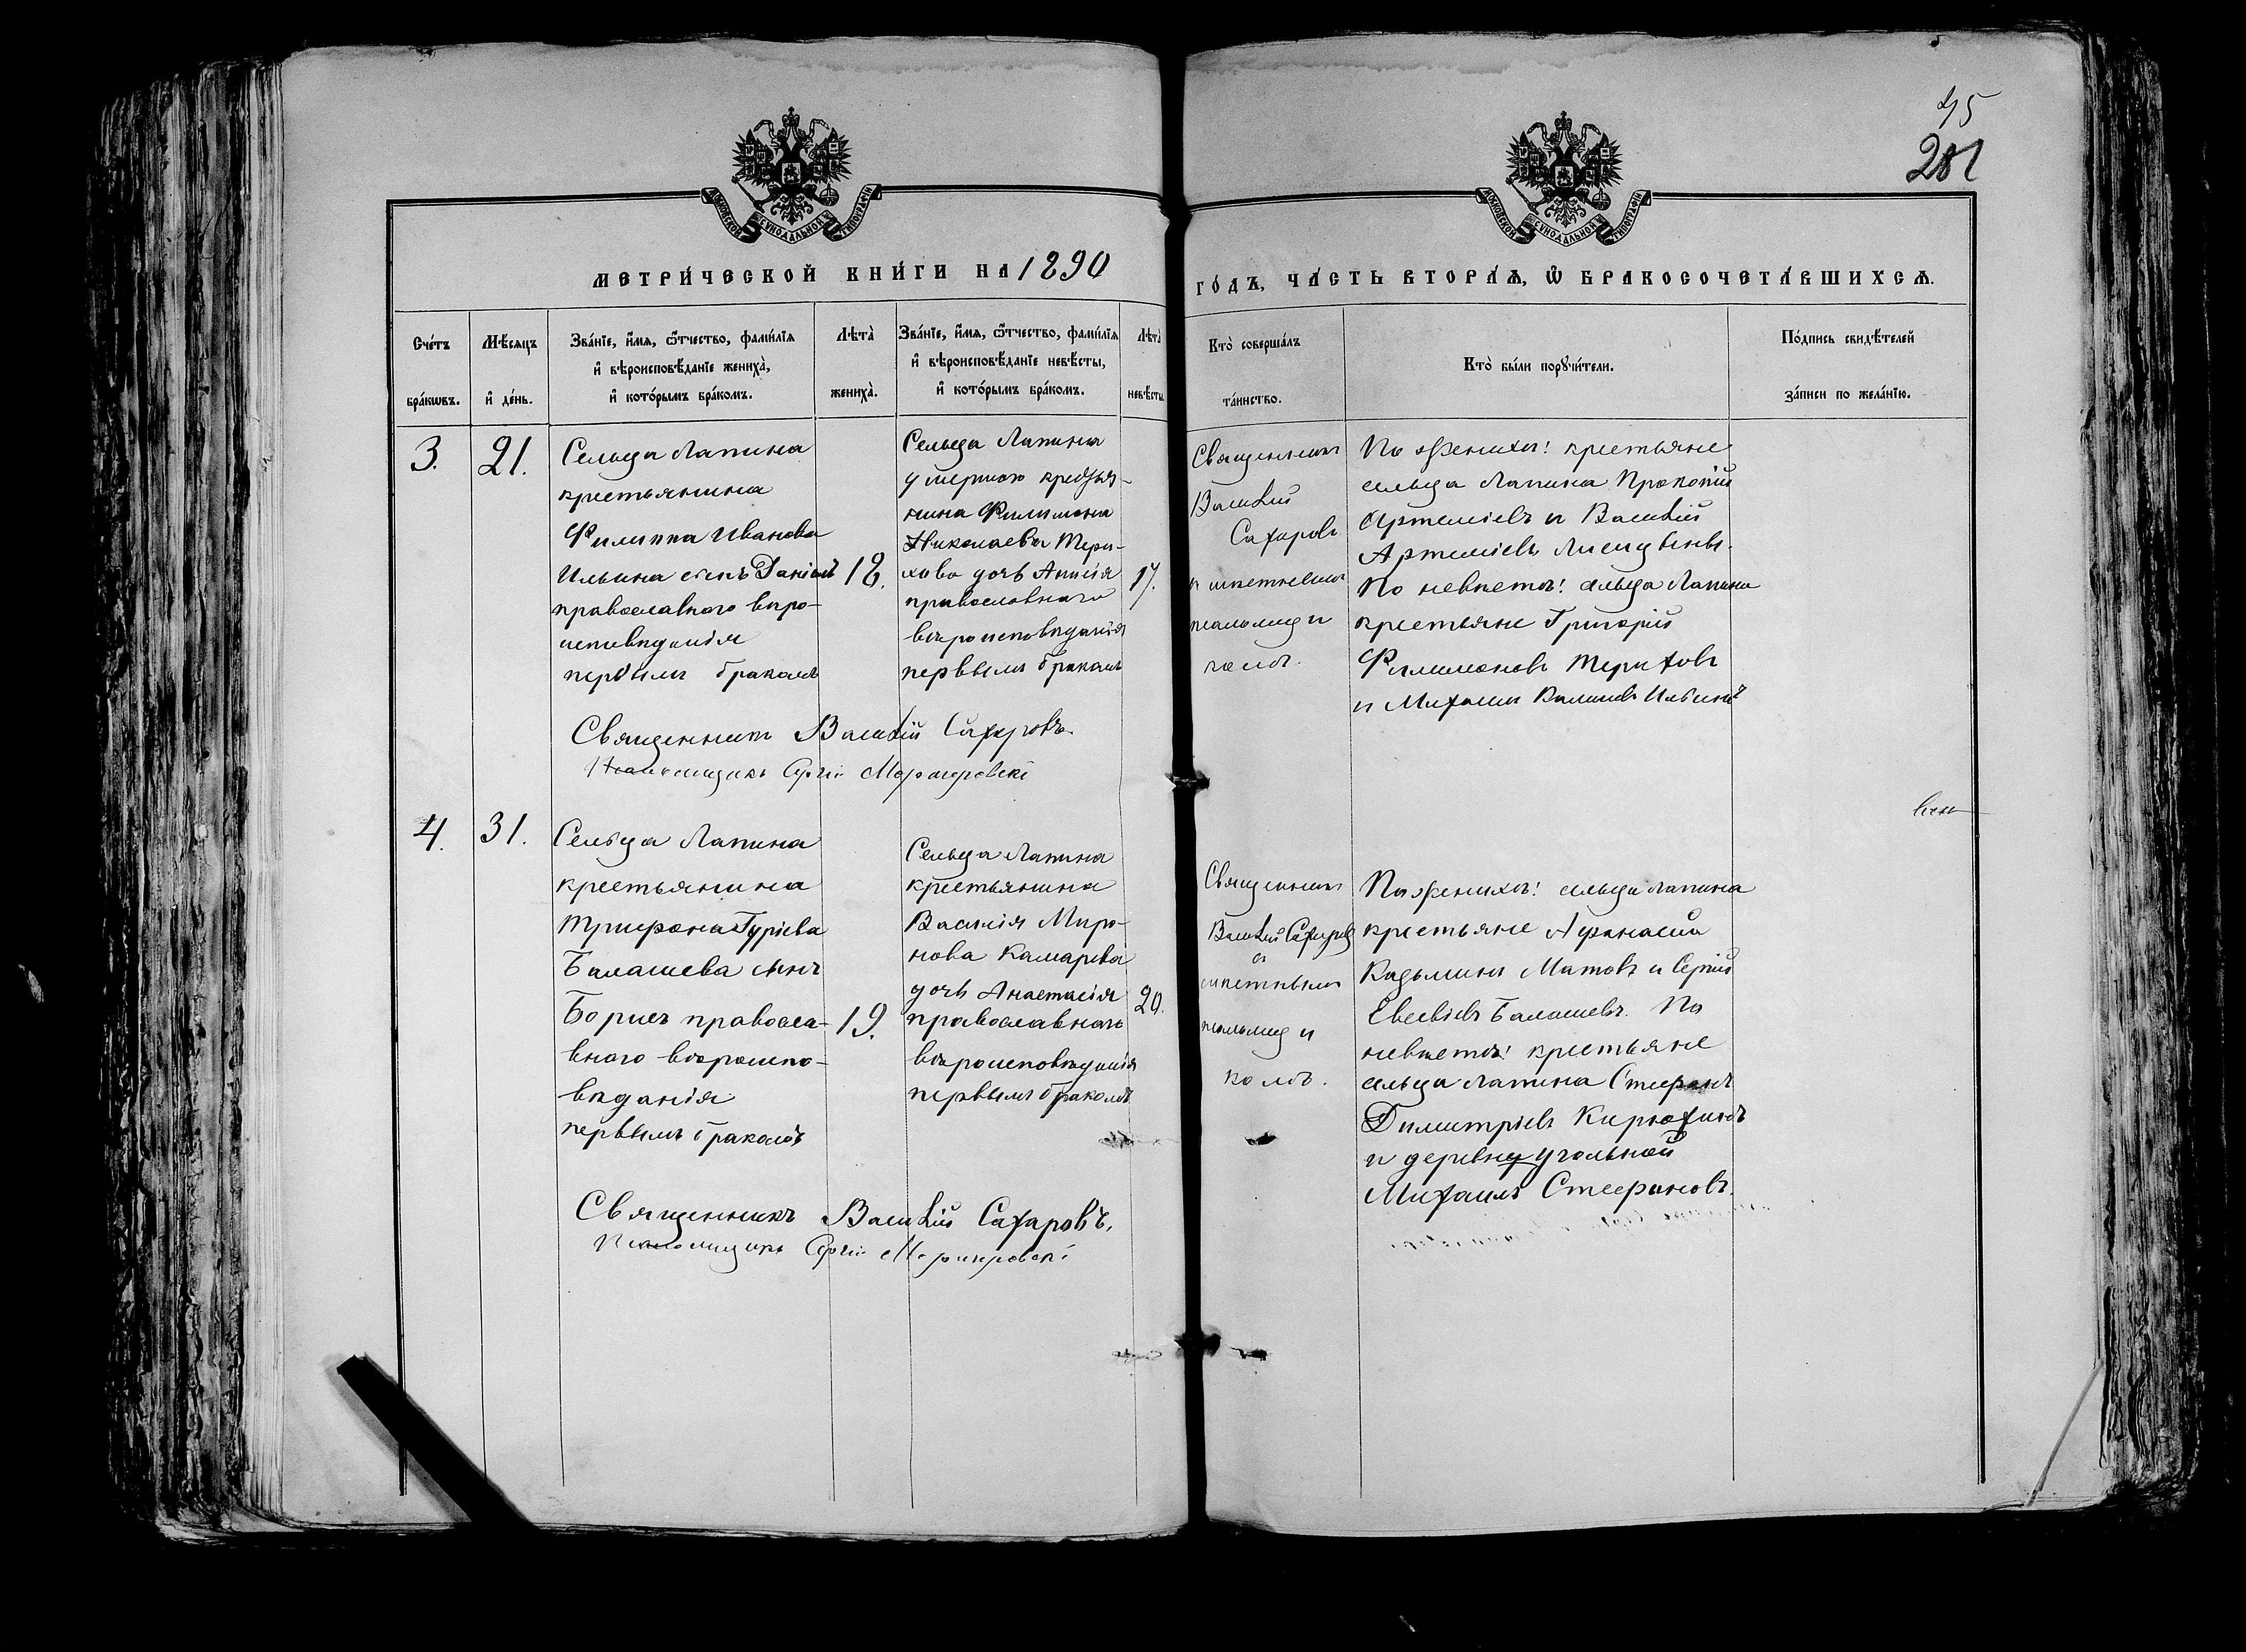 45
281
МОСКОВСКОЙ СѴНОДАЛЬНОЙ ТИПОГРАФІИ
МОСКОВСКОЙ СѴНОДАЛЬНОЙ ТИПОГРАФІИ
МЕТРИ́ЧЕСКОЙ КНИ́ГИ НА 1890
ГО́ДЪ, ЧА́СТЬ ВТОРА́Ѧ, Ѡ҆ БРАКОСОЧЕТА́ВШИХСѦ.
Сче́тъ бра́кѡвъ.
Мѣ́сяцъ и҆ де́нь.
Зва́нїе, и҆́мѧ, ѻ҆́тчество, фами́лїѧ
и҆ вѣроисповѣ́данїе жениха̀,
и҆ кото́рымъ бра́комъ.
Лѣта̀ жениха̀.
Зва́нїе, и҆́мѧ, ѻ҆́тчество, фами́лїѧ
и҆ вѣроисповѣ́данїе невѣ́сты,
и҆ кото́рымъ бра́комъ.
Лѣта̀ невѣ́сты.
Кто̀ соверша́лъ
та́инство.
Кто̀ бы́ли порꙋчи́тели.
По́дпись свидѣ́телей
за́писи по жела́нїю.
3.
21.
Сельца Лапина
крестьянина
Филиппа Иванова
Ильина сынъ Даніилъ
православнаго вѣро-
исповѣданія
первымъ бракомъ
18.
Сельца Лапина
умершаго кресть-
нина Филимона
Николаева Тери-
хова дочь Анисія
православнаго
вѣроисповѣданія
первымъ бракомъ
17.
Священникъ
Василій
Сахаровъ
псаломщи
комъ.
По женихѣ: крестьяне
сельца Лапина Прокопій
Артеміевъ и Василій
Артеміевъ
По невѣстѣ: сельца Лапина
крестьяне Григорій
Филимоновъ Териховъ
и Михаилъ Ильинъ
Священникъ Василій Сахаровъ.
Псаломщикъ Сергій
4.
31.
Сельца Лапина
крестьянина
Трифона Гуріева
Балашева сынъ
Борисъ правосла-
внаго вѣроиспо-
вѣданія
первымъ бракомъ
19.
Сельца Лапина
крестьянина
Василія Миро-
нова Камарева
дочь Анастасія
православнаго
вѣроисповѣданія
первымъ бракомъ
20.
Священникъ
Василій Сахаровъ
съ
псаломщи
комъ.
По женихѣ: сельца Лапина
крестьяне Афанасій
Козьминъ Матовъ и Сергій
Евсевіевъ Балашевъ. По
невѣстѣ: крестьяне
сельца Лапина Стефанъ
Димитріевъ Кирюхинъ
и деревни Угольной
Михаилъ Стефановъ.
Священникъ Василій Сахаровъ.
Псаломщикъ Сергій